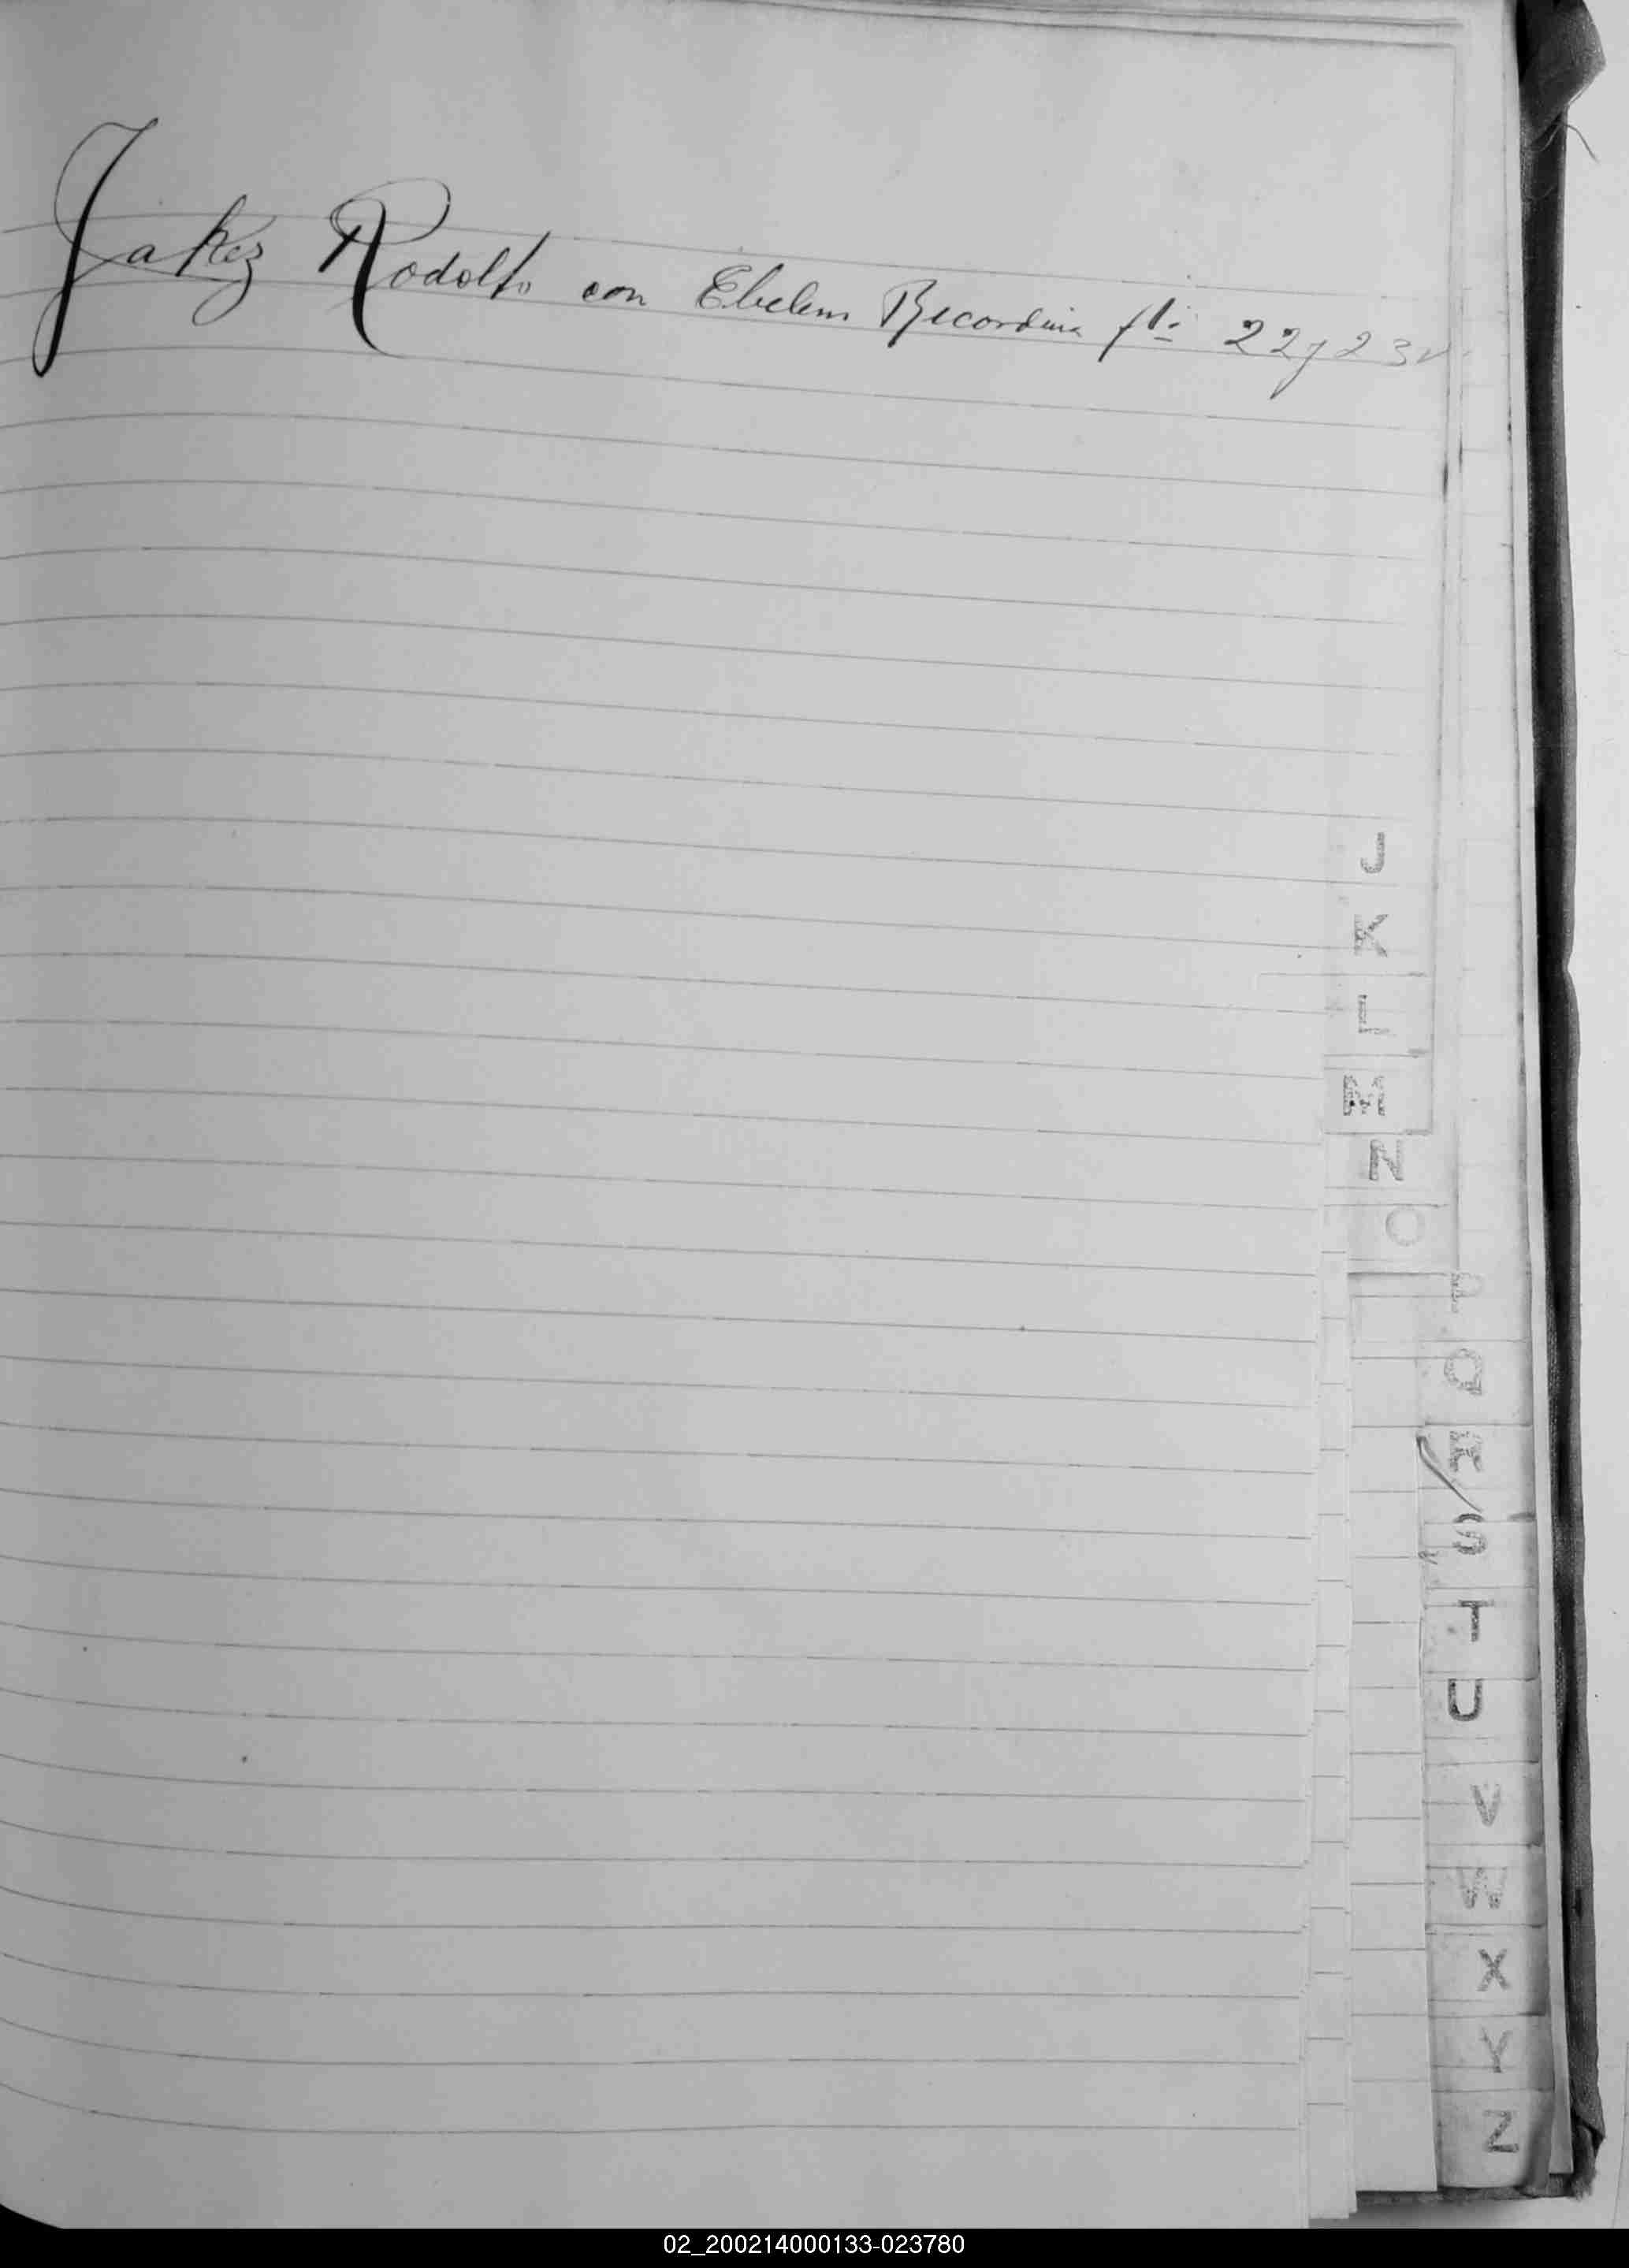 Jakez Rodolfo con Ebelem Recordina fls 22 y 23v
J
K
L
M
N
O
P
Q
R
S
T
U
V
W
X
Y
Z
02_200214000133-023780